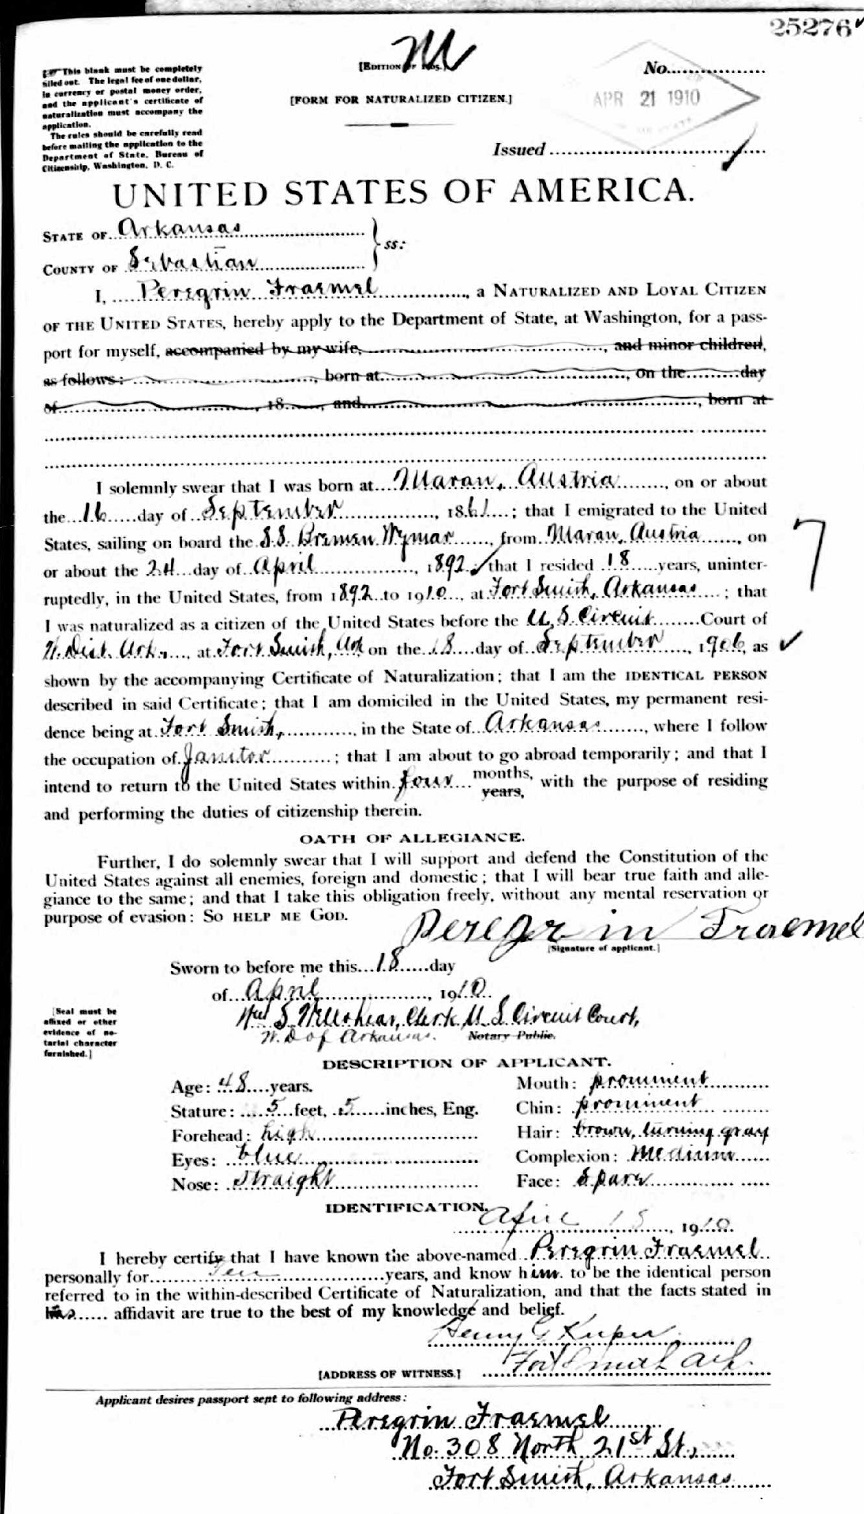 25276
M
[EDITION OF 1905.]
No.
[☞ This blank must be completely
filled out. The legal fee of one dollar,
in currency or postal money order,
and the applicant's certificate of
naturalization must accompany the
application.
The rules should be carefully read
before mailing the application to the
Department of State, Bureau of
Citizenship, Washington, D. C.
[FORM FOR NATURALIZED CITIZEN.]
APR 21 1910
Issued
UNITED STATES OF AMERICA.
STATE OF Arkansas
COUNTY OF Sebastian
} ss:
I, Peregrin Fraemel, a NATURALIZED AND LOYAL CITIZEN
OF THE UNITED STATES, hereby apply to the Department of State, at Washington, for a pass-
port for myself, accompanied by my wife, , and minor children,
as follows: , born at , on the day
of , 18 , and , born at
I solemnly swear that I was born at Maran, Austria, on or about
the 16 day of September, 1861; that I emigrated to the United
States, sailing on board the S.S. Bremen Wymar, from Maran, Austria, on
or about the 24 day of April, 1892; that I resided 18 years, uninter-
ruptedly, in the United States, from 1892 to 1910, at Fort Smith, Arkansas; that
7
I was naturalized as a citizen of the United States before the U.S. Circuit Court of
W. Dist. Ark., at Fort Smith, Ark on the 18 day of September, 1906, as
shown by the accompanying Certificate of Naturalization; that I am the IDENTICAL PERSON
described in said Certificate; that I am domiciled in the United States, my permanent resi-
dence being at Fort Smith, in the State of Arkansas, where I follow
the occupation of Janitor; that I am about to go abroad temporarily; and that I
intend to return to the United States within four months, years, with the purpose of residing
and performing the duties of citizenship therein.
OATH OF ALLEGIANCE.
Further, I do solemnly swear that I will support and defend the Constitution of the
United States against all enemies, foreign and domestic; that I will bear true faith and alle-
giance to the same; and that I take this obligation freely, without any mental reservation or
purpose of evasion: SO HELP ME GOD.
Peregrin Fraemel
[Signature of applicant.]
Sworn to before me this 18 day
of April, 1910.
[Seal must be
affixed or other
evidence of no-
tarial character
furnished.]
S. Clerk U.S. Circuit Court,
W. D of Arkansas. Notary Public.
DESCRIPTION OF APPLICANT.
Age: 48 years.
Mouth: prominent
Stature: 5 feet, 5 inches, Eng.
Chin: prominent
Forehead: high
Hair: brown, turning gray
Eyes: blue
Complexion: Medium
Nose: Straight
Face: Spare
IDENTIFICATION.
April 18, 1910.
I hereby certify that I have known the above-named Peregrin Fraemel
personally for Ten years, and know him to be the identical person
referred to in the within-described Certificate of Naturalization, and that the facts stated in
his affidavit are true to the best of my knowledge and belief.
Henry C Kuper
Fort Smith Ark.
[ADDRESS OF WITNESS.]
Applicant desires passport sent to following address:
Peregrin Fraemel
No. 308 North 21st St,
Fort Smith, Arkansas